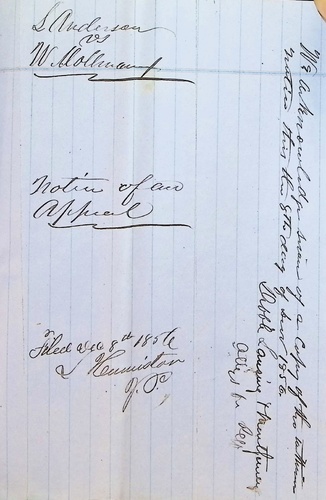 L Anderson
vs
W. Mollman
Notice of an
Appeal
Filed Dec 8th 1856
L Humiston
J. P.
We acknowledge service of a copy of the within
notice this the 8th day of Dec 1856
Lansing & Montgomery
Attys for Deft